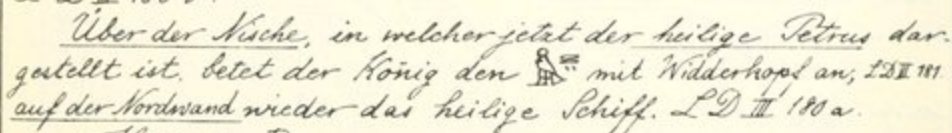 Über der Nische, in welcher jetzt der heilige Petrus dar-
gestellt ist. betet der König den mit Widderkopf an, LD III 181.
auf der Nordwand wieder das heilige Schiff. LD III 180a.